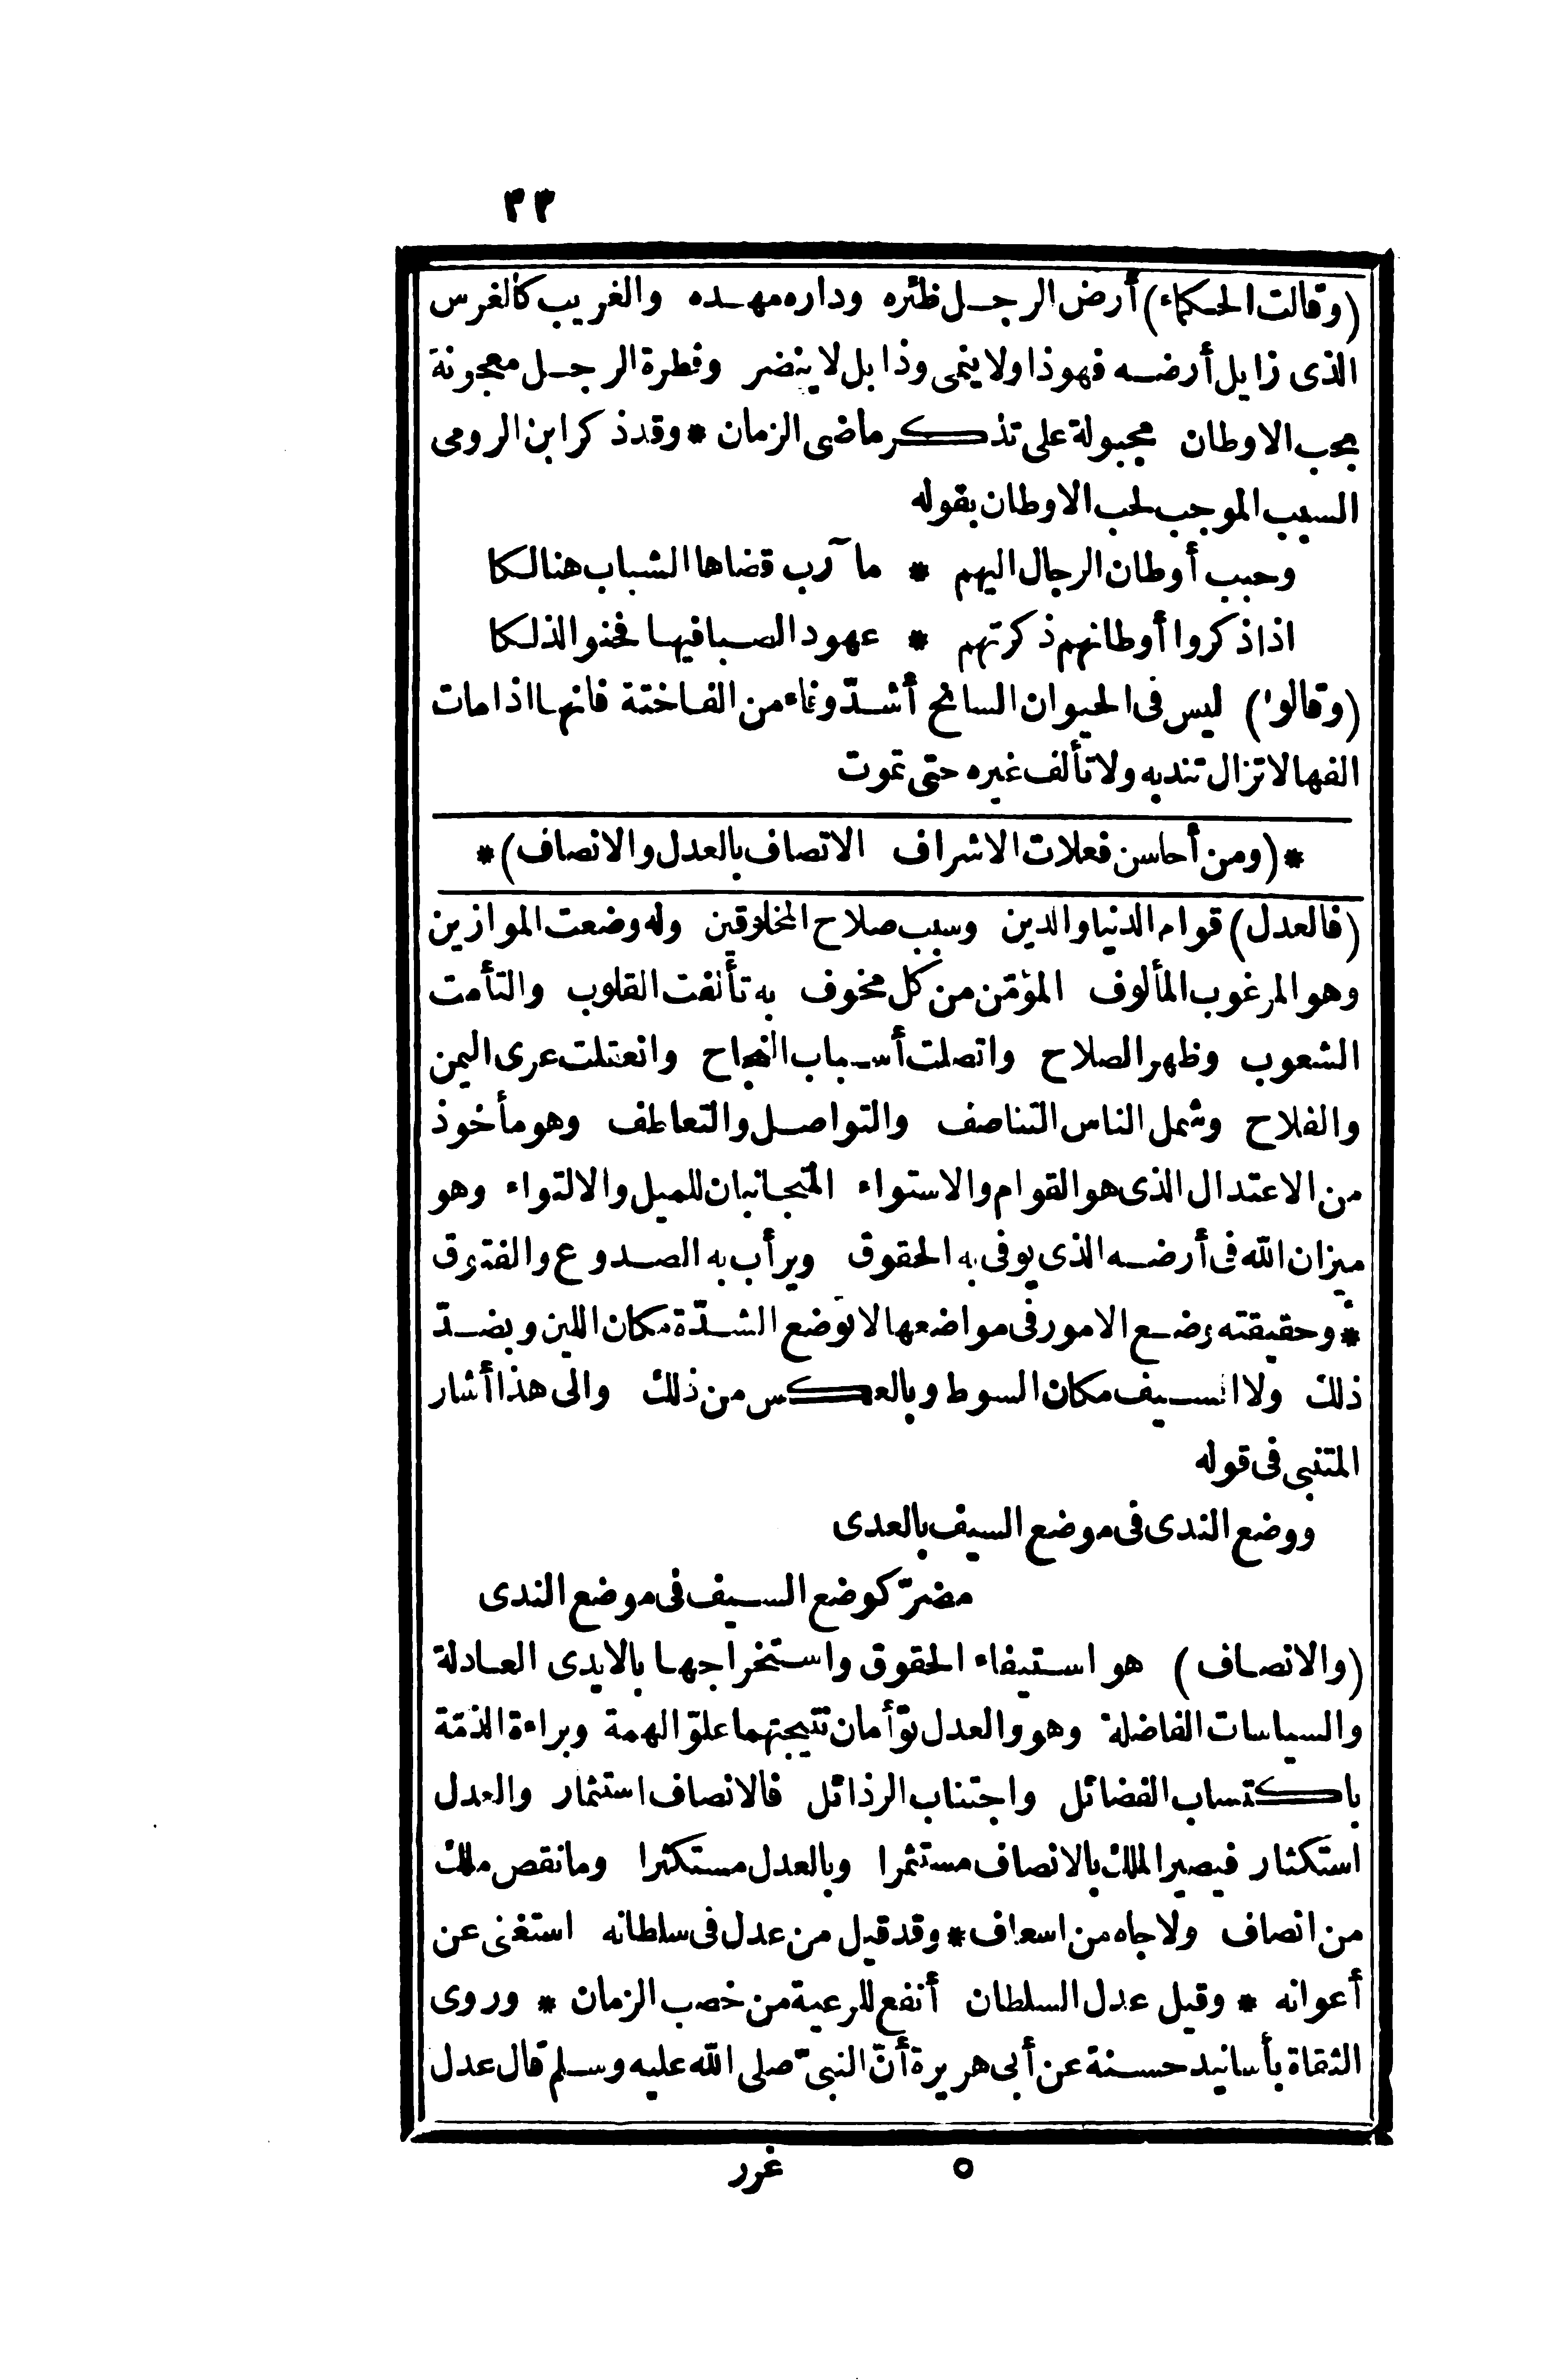 ٣٣
(وقالت الحكماء) أرض الرجل ظئره وداره مهده والغريب كالغرس
الذى زايل أرضه فهو ذاو لا ينمى وذابل لا ينضر وفطرة الرجل معجونة
بحب الاوطان مجبولة على تذكر ماضى الزمان * وقد ذكر ابن الرومى
السبب الموجب لحب الاوطان بقوله
وحبب أوطان الرجال اليهم * مآرب قضاها الشباب هنالكا
اذا ذكروا أوطانهم ذكرتهم * عهود الصبا فيها فحنوا لذلكا
(وقالوا) ليس فى الحيوان السانح أشدّ وفاء من الفاختة فانها اذا مات
الفها لا تزال تندبه ولا تألف غيره حتى تموت
*(ومن أحاسن فعلات الاشراف الاتصاف بالعدل والانصاف)*
(فالعدل) قوام الدنيا والدين وسبب صلاح المخلوقين وله وضعت الموازين
وهو المرغوب المألوف المؤمّن من كل مخوف به تألفت القلوب والتأمت
الشعوب وظهر الصلاح واتصلت أسباب النجاح وانعقلت عرى اليمن
والفلاح وشمل الناس التناصف والتواصل والتعاطف وهو مأخوذ
من الاعتدال الذى هو القوام والاستواء المتجانبان للميل والالتواء وهو
ميزان الله فى أرضه الذى يوفى به الحقوق ويرأب به الصدوع والفتوق
* وحقيقته وضع الامور فى مواضعها لا توضع الشدّة مكان اللين وبضدّ
ذلك ولا السيف مكان السوط وبالعكس من ذلك والى هذا أشار
المتنبى فى قوله
ووضع الندى فى موضع السيف بالعدى
مضرّ كوضع السيف فى موضع الندى
(والانصاف) هو استيفاء الحقوق واستخراجها بالايدى العادلة
والسياسات الفاضلة وهو والعدل توأمان نتيجتهما علوّ الهمة وبراءة الذمّة
باكتساب الفضائل واجتناب الرذائل فالانصاف استثمار والعدل
استكثار فيصير الملك بالانصاف مستثمرا وبالعدل مستكثرا وما نقص ملك
من انصاف ولا جاه من اسعاف * وقد قيل من عدل فى سلطانه استغنى عن
أعوانه * وقيل عدل السلطان أنفع للرعية من خصب الزمان * وروى
الثقاة بأسانيد حسنة عن أبى هريرة أنّ النبىّ صلى الله عليه وسلم قال عدل
٥ غرر